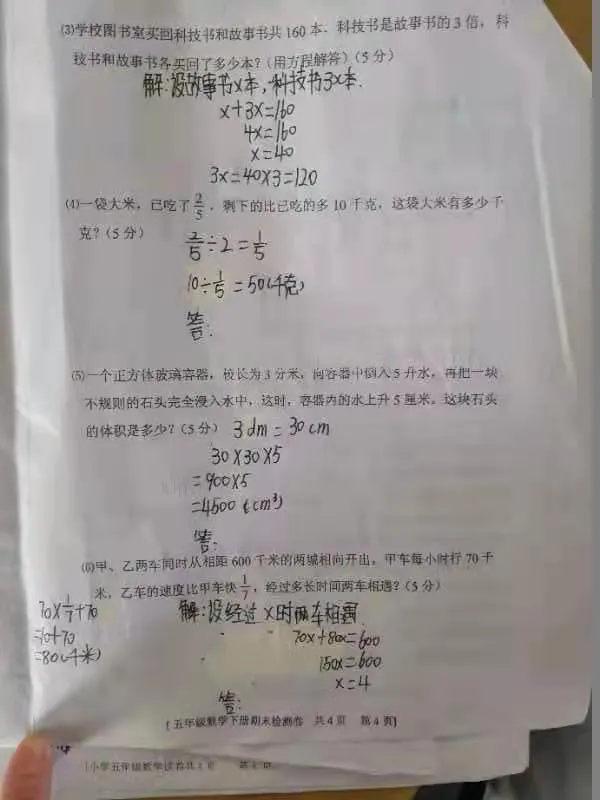 (3)学校图书室买回科技书和故事书共160本．科技书是故事书的3倍，科
技书和故事书各买回了多少本？(用方程解答)(5分)
解:设故事书x本,科技书3x本.
x+3x=160
4x=160
x=40
3x=40×3=120
(4)一袋大米，已吃了2/5．剩下的比已吃的多10千克，这袋大米有多少千
克？(5分)
2/5÷2=1/5
10÷1/5=50(千克)
答:
(5)一个正方体玻璃容器，棱长为3分米，向容器中倒入5升水，再把一块
不规则的石头完全浸入水中，这时，容器内的水上升5厘米，这块石头
的体积是多少？(5分) 3dm=30cm
30×30×5
=900×5
=4500(cm³)
答:
(6)甲、乙两车同时从相距600千米的两城相向开出，甲车每小时行70千
米，乙车的速度比甲车快1/7，经过多长时间两车相遇？(5分)
70×1/7+70
=10+70
=80(千米)
解:设经过x时两车相遇.
70x+80x=600
150x=600
x=4
答:
[五年级数学下册期末检测卷 共4页 第4页]
小学五年级数学